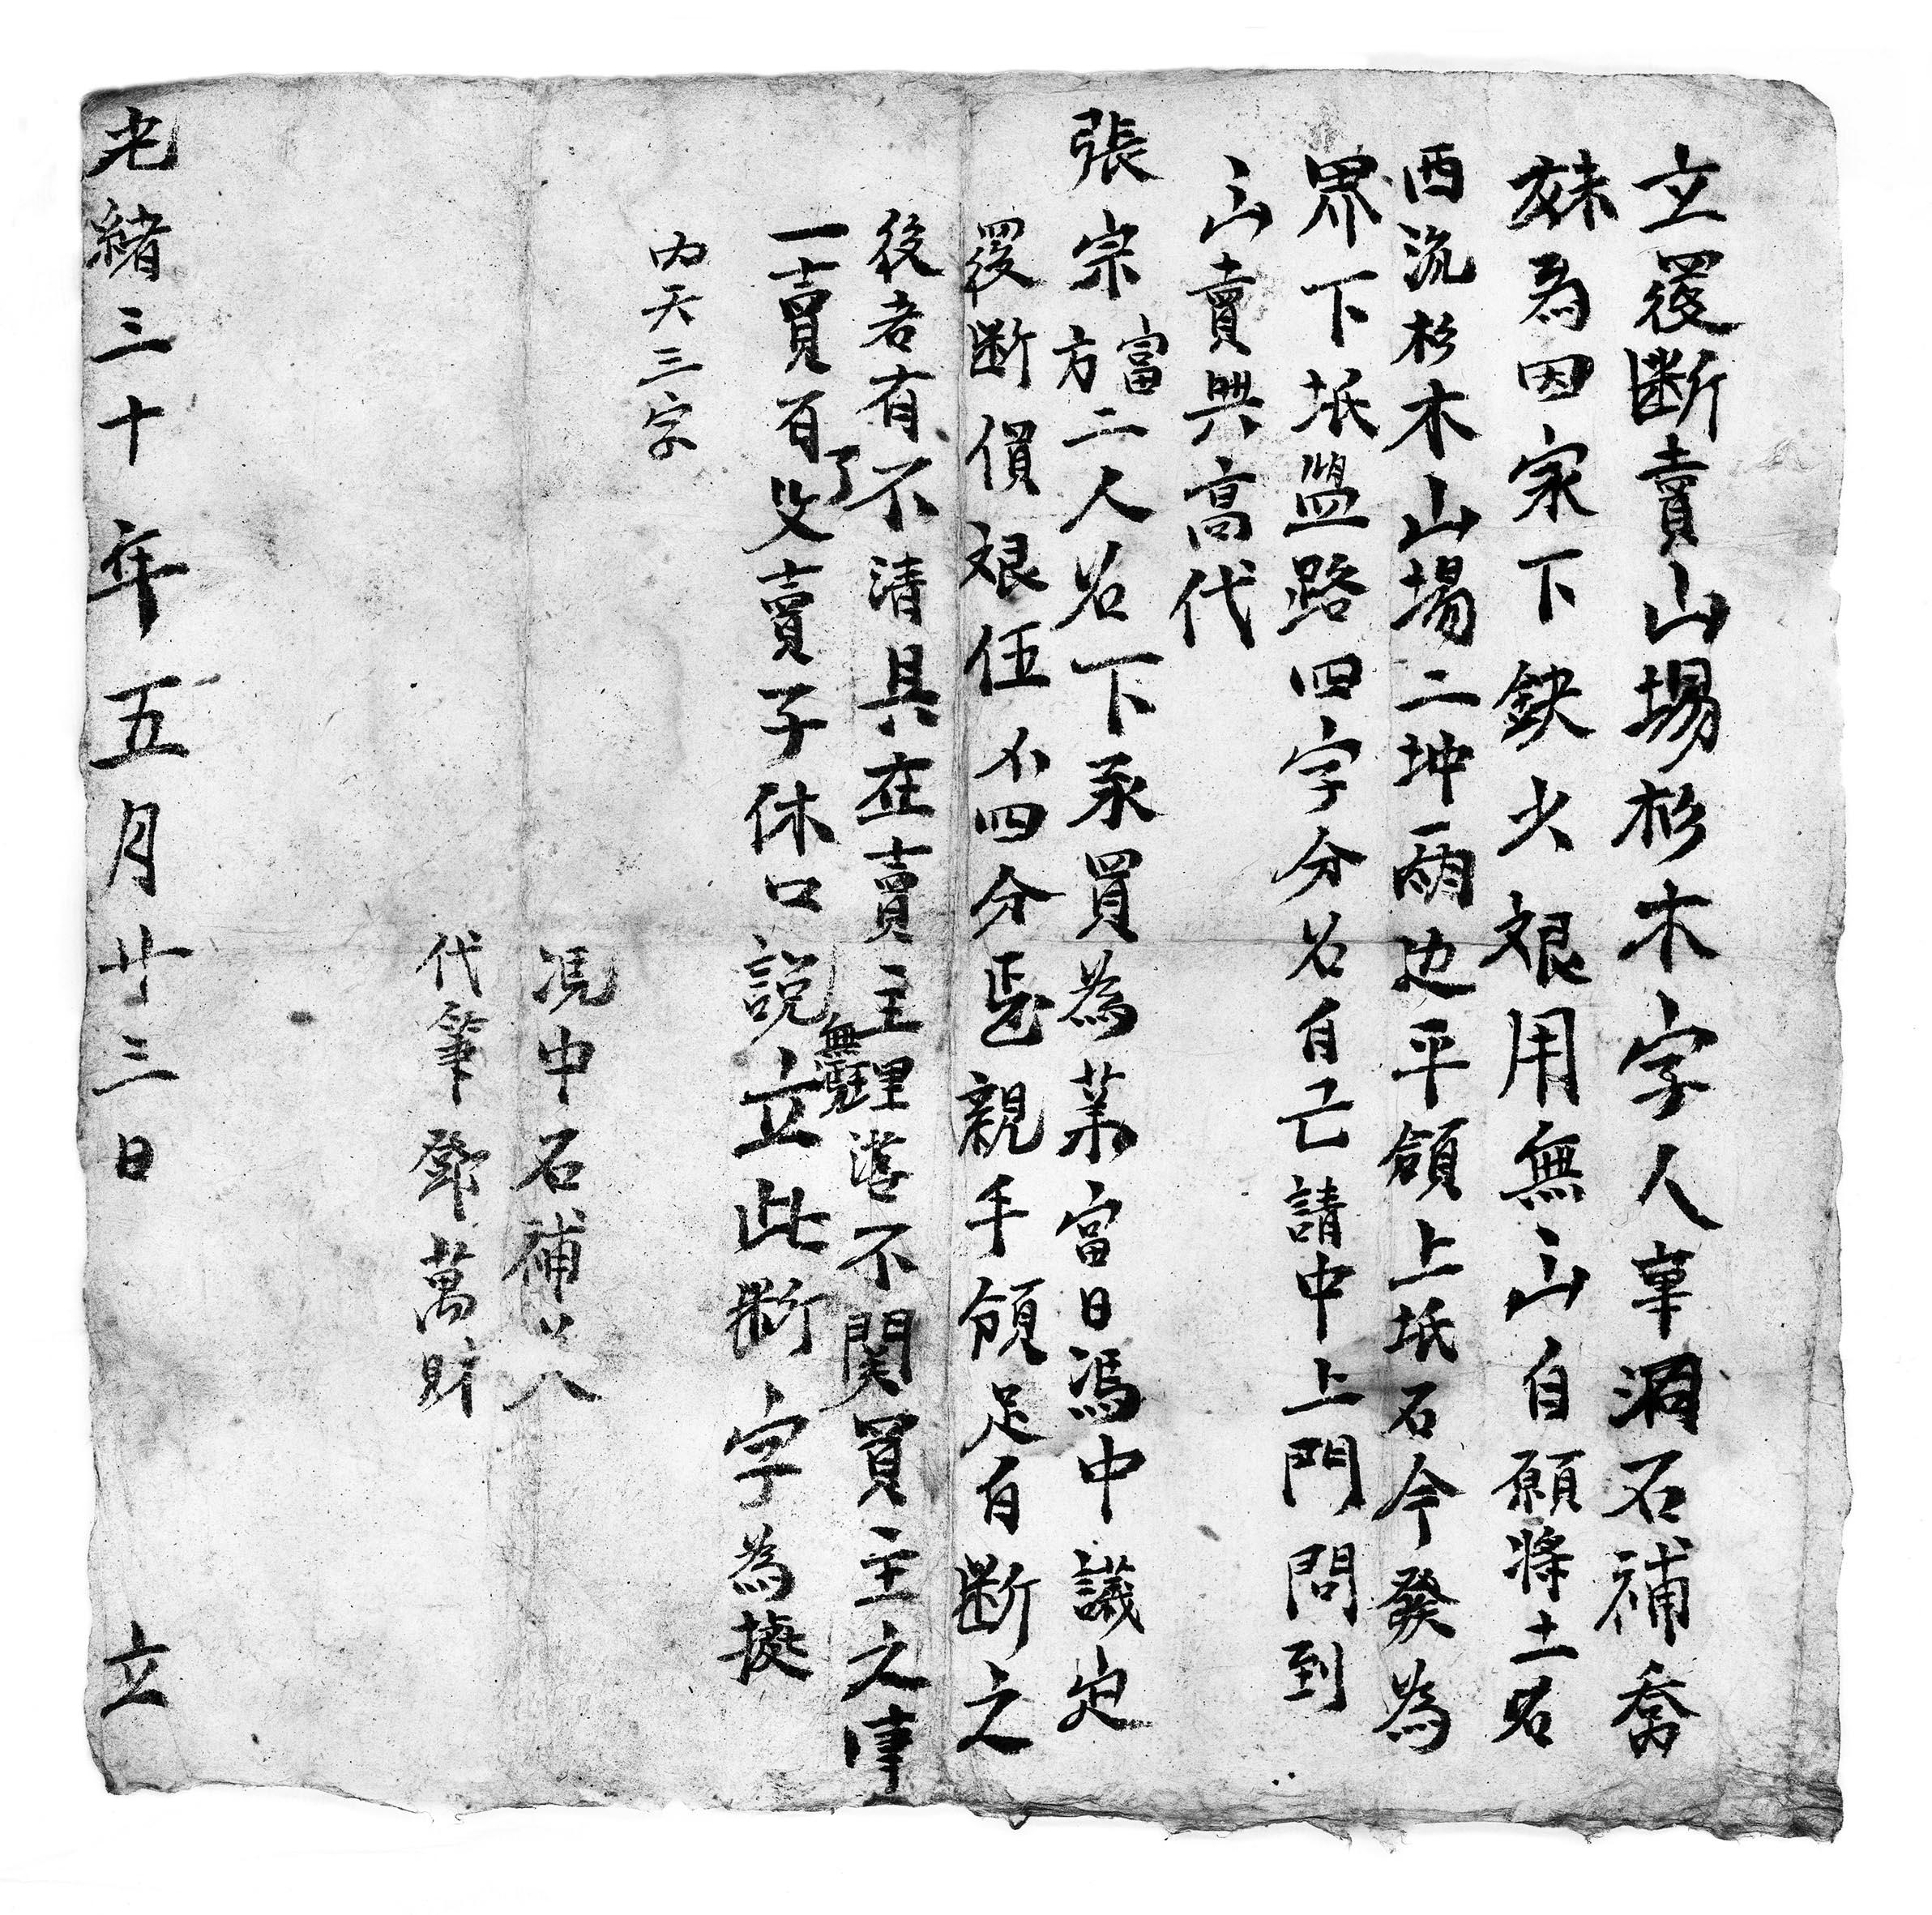 立斷賣山塲杉木字人事洞石補喬
妹為因家下缺少艮用無山自願將土名
西流杉木山塲二坤兩边平領上坻石今發為
界下坻盟路四字分名自己請中上門問到
山賣與高代
張宗富方二人名下承買為業當日馮中議定
斷價艮伍不四分親手領足自斷之
後者有不清具在賣主理落不関買主之事
一賣百了父賣子休口說無立此斷字為據
內天三字
馮中石補八
代筆鄧萬財
光緒三十年五月廿三日立